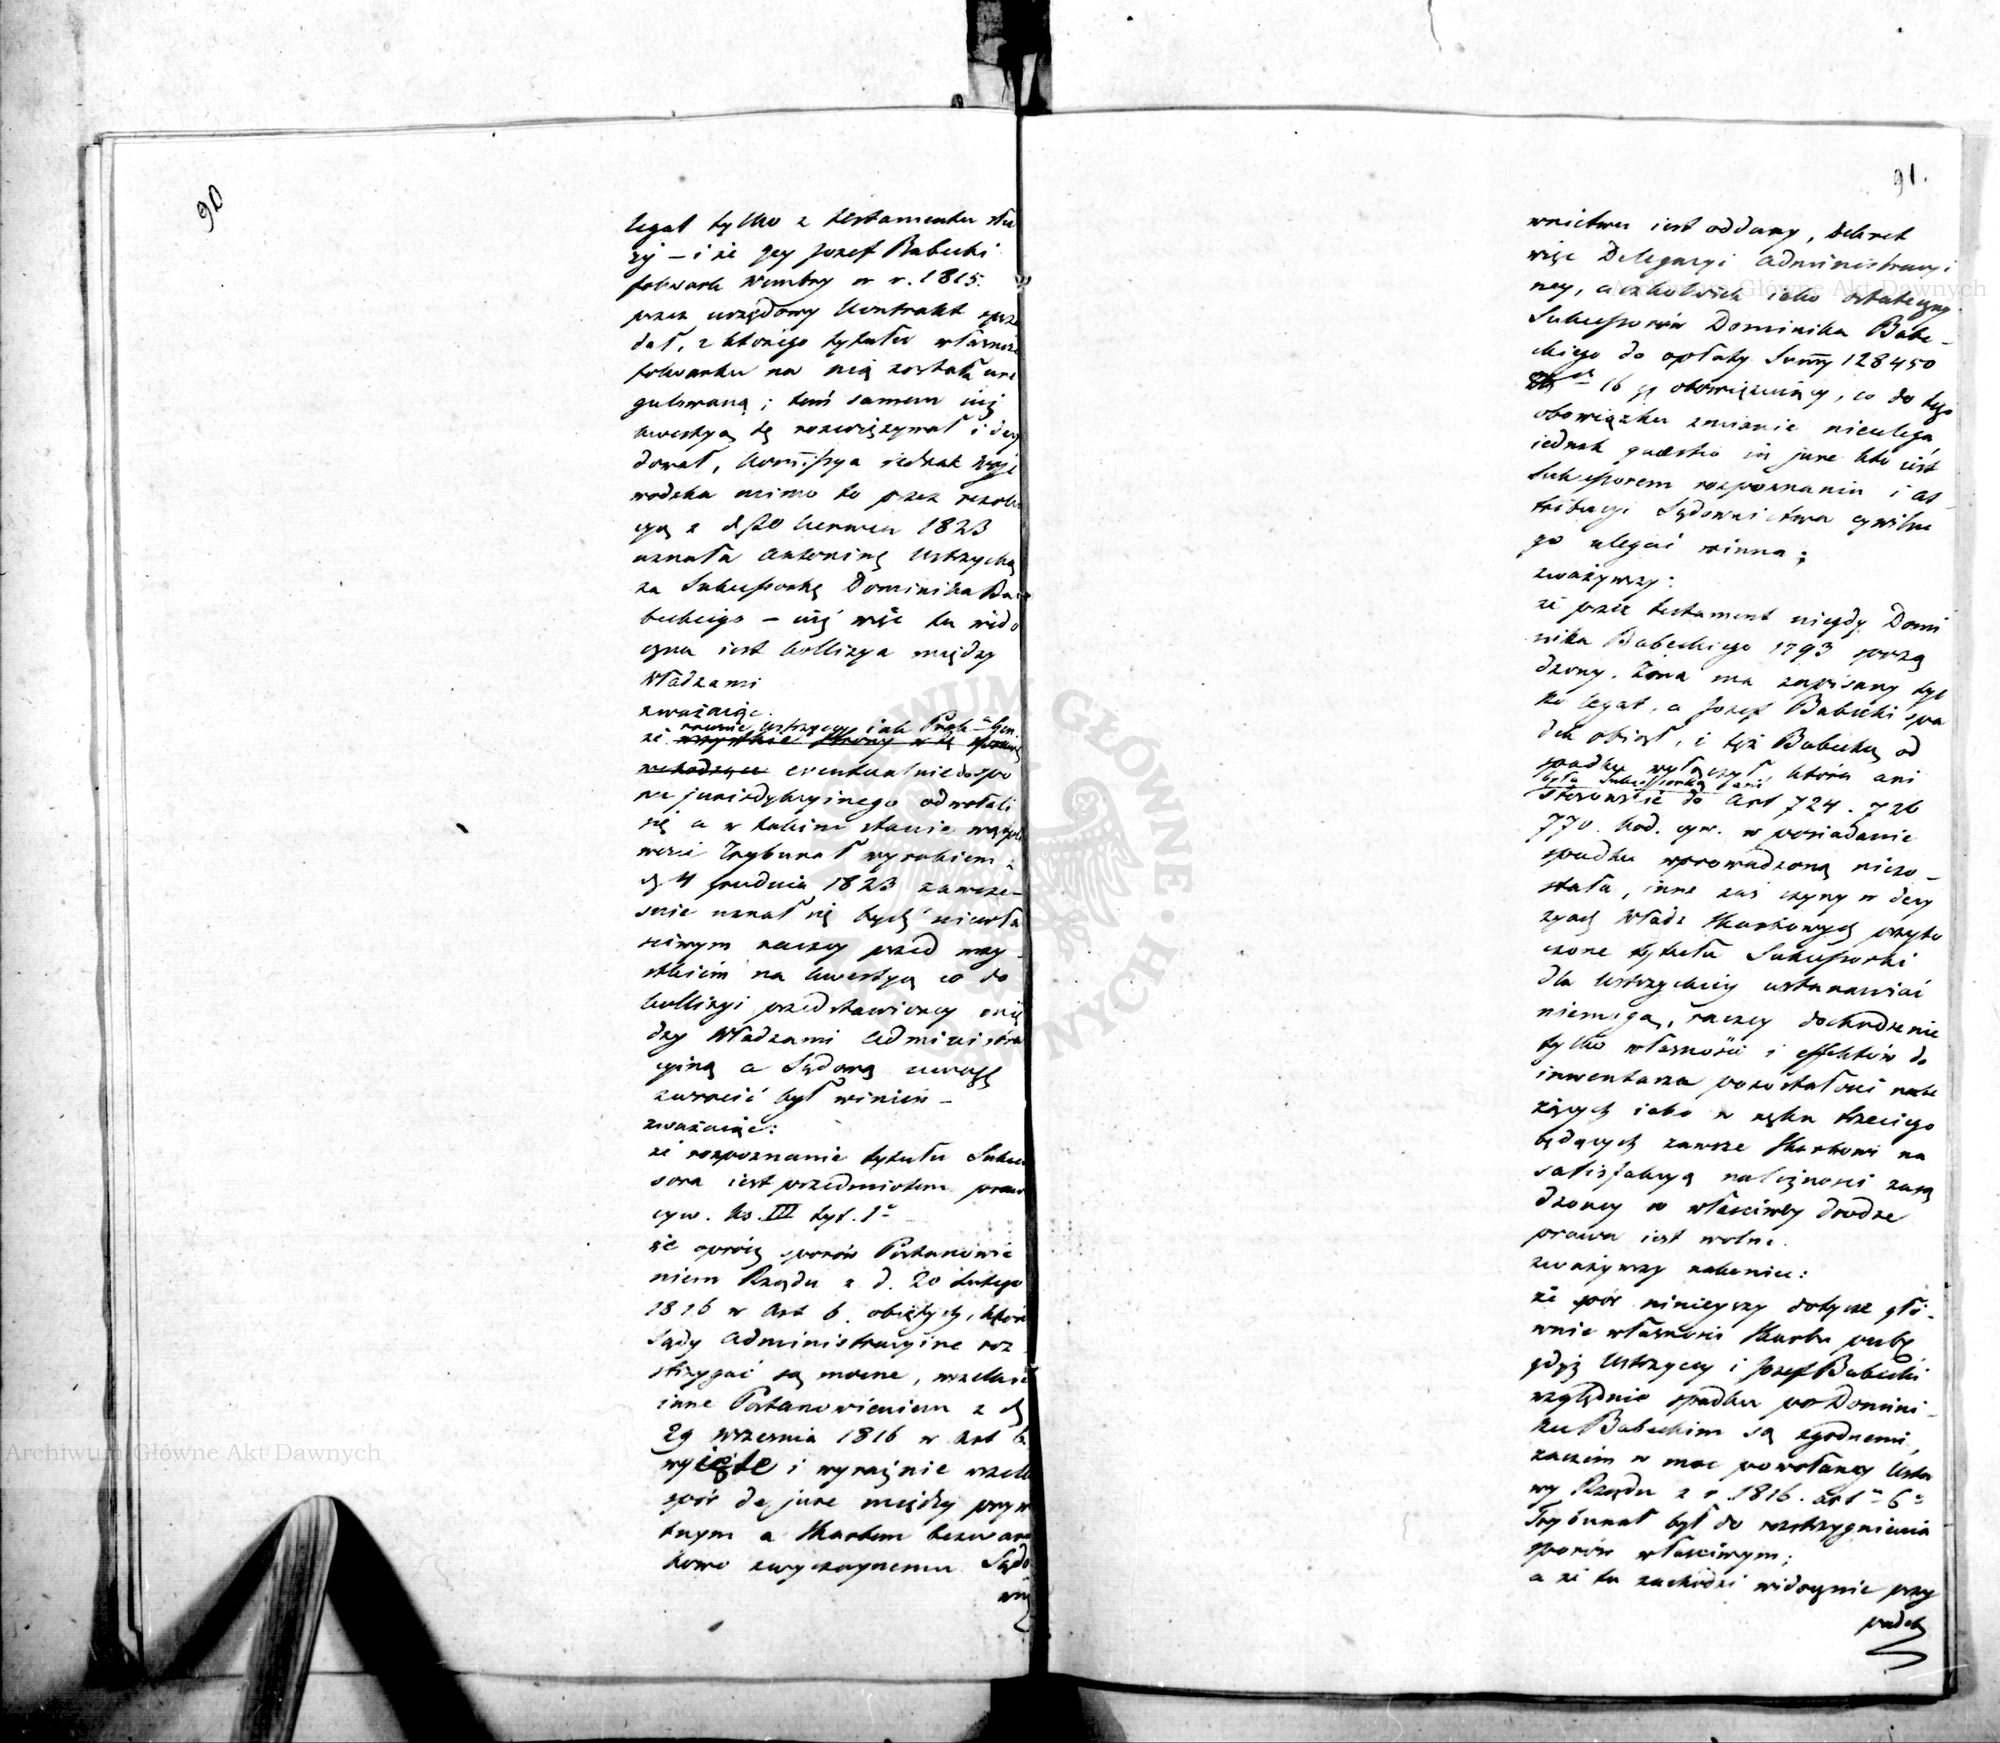 90
legat tylko z testamentu słu
ży – i że gey Jozef Babecki
folwark Wembry w r. 1815.
przez urzędowy kontrakt sprze
dał, z którego tytułu własność
folwarku na nią została ure
gulowaną; tem samem iuż
kwestyą tę rozwiązywał i decy
dował, kommissya iednak Woje
wodzka mimo to przez rezolu
cyą z d. 20 czerwca 1823
uznała Antoninę Ustrzycką
za Sukcessorkę Dominika Ba
beckiego – iuż więc tu wido
czna iest kollizya między
Władzami
zważaiąc.
że równie Ustrzyccy iak Prok-a Gen.
eventualnie do spo
ru jurisdykcyinego odwołali
się a w takim stanie wątpli
wości Trybunał wyrokiem z
d. 4 Grudnia 1823 zawcze-
śnie uznał się bydź niewła
ściwym raczey przed wszy
stkiem na kwestyą co do
kollizyi przedstawioney mię
dzy Władzami Administra
cyiną a Sądową uwagę
zwrócić był winien –
zważaiąc:
że rozpoznanie tytułu Sukces
sora iest przedmiotem prawa
cyw. ks. III tyt. 1o
że oprócz sporów Postanowie
niem Rządu z d. 20 Lutego
1816 w Art 6. obiętych, które
Sądy Administracyine roz
strzygać są mocne, wszelkie
inne Postanowieniem z d.
29 Września 1816 w Art 6
wyięte i wyraźnie wszelki
spór de jure między prywa
tnym a Skarbem bezwarun
kowo zwyczaynemu Sądo
wni
91.
wnictwu iest oddany, dekret
więc Delegacyi Administracyi
ney, aczkolwiek iako ostateczny
Sukcessorów Dominika Babe-
ckiego do opłaty Summy 128450
16 gr obowięzuiący, co do tego
obowiązku zmianie nieulega
iednak quaestio in jure kto iest
Sukcessorem rozpoznaniu i at
trybucyi Sądownictwa cywilne
go ulegać winna;
zważywszy:
że przez testament niegdy Domi
nika Babeckiego 1793 sporzą
dzony. Żona ma zapisany tyl
ko legat, a Jozef Babecki spa
dek obiął, i też Babecką od
spadku wyłączył, która ani
była Sukcessorką ani
stosownie do Art 724. 726
770. kod. cyw. w posiadanie
spadku wprowadzoną niezo-
stała, inne zaś czyny w decy
zyach Władz Skarbowych przyto
czone tytułu Sukcessorki
dla Ustrzyckiey ustanawiać
niemogą, raczey dochodzenie
tylko własności i effektów do
inwentarza pozostałości nale
żących iako w ręku trzeciego
będących zawsze Skarbowi na
satisfakcyą należności zasą
dzoney w właściwey drodze
prawa iest wolne.
zważywszy nakoniec:
że spór ninieyszy dotycze głó-
wnie własności Skarbu publ.
gdyż Ustrzyccy i Jozef Babecki
względnie spadku po Domini-
ku Babeckim są zgodnemi,
zaczem w moc powołaney Usta
wy Rządu z r. 1816. art-u 6o
Trybunał był do rozstrzygnienia
sporów właściwym;
a że tu zachodzi widocznie przy
padek